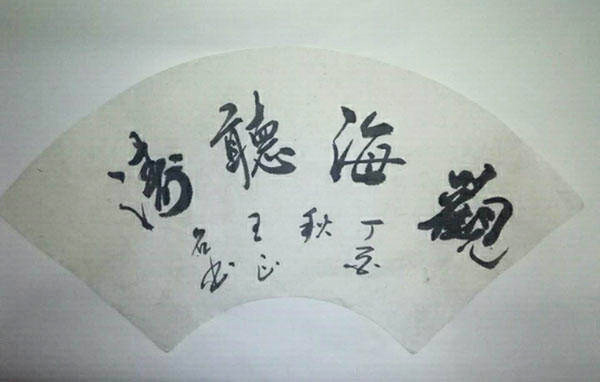 觀海聽濤
丁酉
秋
王正
名书